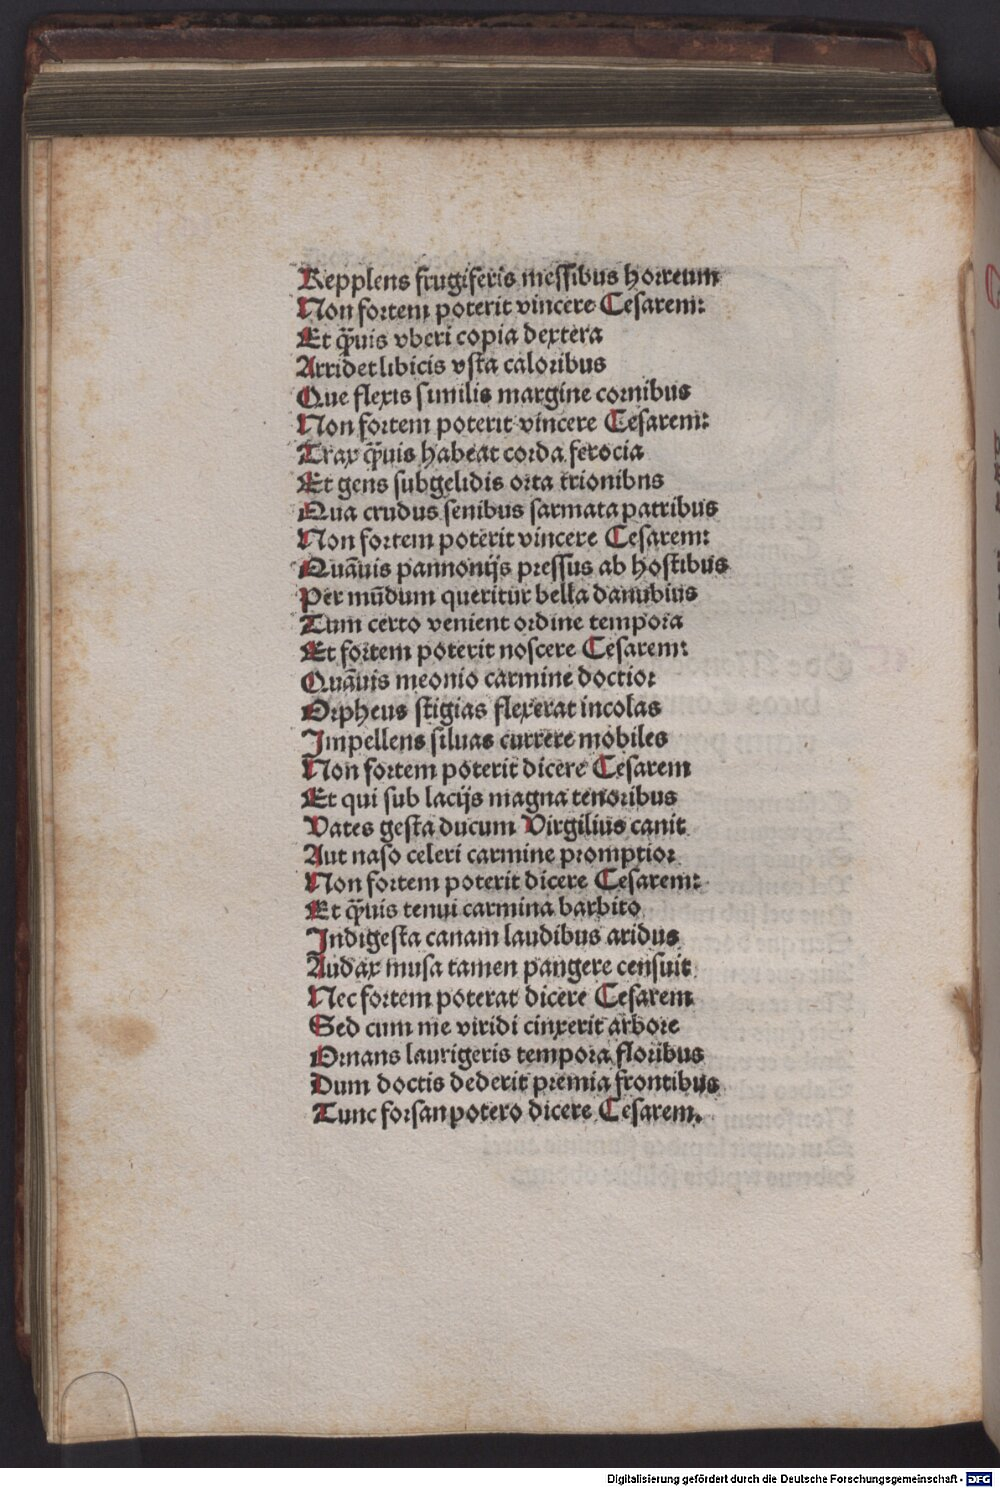 Repplens frugiferis messibus horreum
Non fortem poterit vincere Cesarem:
Et q̄̈uis vberi copia dextera
Arridet libicis vsta caloribus
Que flexis similis margine cornibus
Non fortem poterit vincere Cesarem:
Trax q̄̈uis habeat corda ferocia
Et gens subgelidis orta trionibns
Qua crudus senibus sarmata patribus
Non fortem poterit vincere Cesarem:
Quāuis pannonijs pressus ab hostibus
Per mūdum queritur bella danubius
Tum certo venient ordine tempora
Et fortem poterit noscere Cesarem:
Quāuis meonio carmine doctior
Orpheus stigias flexerat incolas
Impellens siluas currere mobiles
Non fortem poterit dicere Cesarem
Et qui sub lacijs magna tenoribus
Vates gesta ducum Virgilius canit
Aut naso celeri carmine promptior
Non fortem poterit dicere Cesarem:
Et q̄̈uis tenui carmina barbito
Indigesta canam laudibus aridus
Audax musa tamen pangere censuit
Nec fortem poterat dicere Cesarem
Sed cum me viridi cinxerit arbore
Ornans laurigeris tempora floribus
Dum doctis dederit premia frontibus
Tunc forsan potero dicere Cesarem.
Digitalisierung gefördert durch die Deutsche Forschungsgemeinschaft - DFG